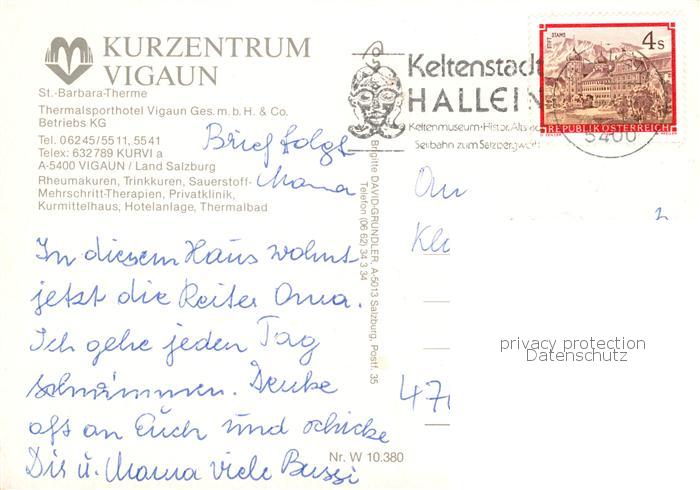 KURZENTRUM
VIGAUN
St.-Barbara-Therme
Thermalsporthotel Vigaun Ges. m. b. H. & Co.
Betriebs KG
Tel. 06245/5511, 5541
Telex: 632789 KURVI a
A-5400 VIGAUN / Land Salzburg
Rheumakuren, Trinkkuren, Sauerstoff-
Mehrschritt-Therapien, Privatklinik,
Kurmittelhaus, Hotelanlage, Thermalbad
Brief folgt
Mama
In diesem Haus wohnt
jetzt die Reiter Oma.
Ich gehe jeden Tag
schwimmen. Denke
oft an Euch und schicke
Dir u. Mama viele Bussi
Nr. W 10.380
Brigitte DAVID-GRÜNDLER, A-5013 Salzburg, Postf. 35
Telefon (06 62) 34 3 34
Keltenstadt
HALLEIN
Keltenmuseum · Histor. Altstadt
Seilbahn zum Salzbergwerk
STIFT STAMS
4 s
REPUBLIK ÖSTERREICH
5400
47
privacy protection
Datenschutz